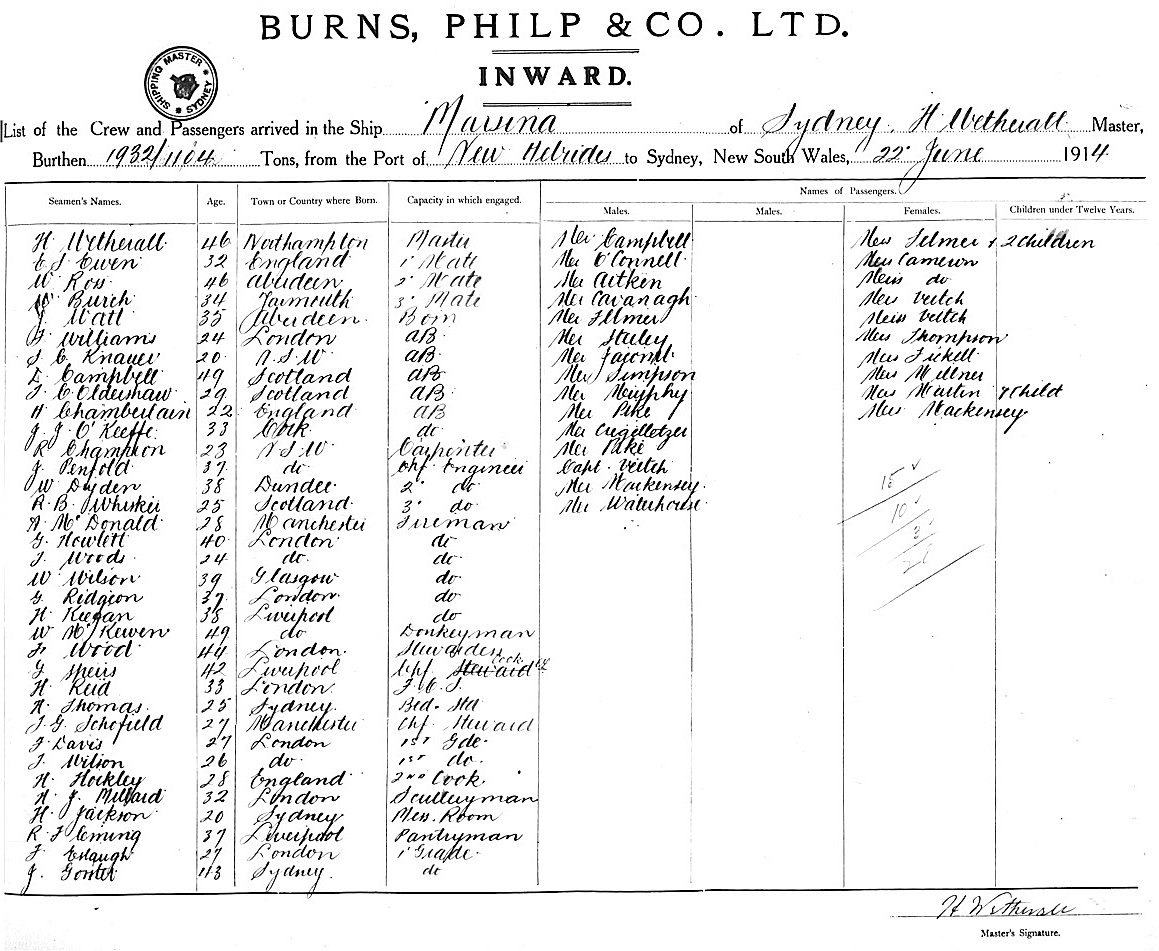 BURNS, PHILP & CO. LTD.
INWARD.
SHIPPING MASTER * SYDNEY *
List of the Crew and Passengers arrived in the Ship Maisina of Sydney, H Wetherall Master,
Burthen 1932/1104 Tons, from the Port of New Hebrides to Sydney, New South Wales, 22 June 1914
Names of Passengers.
Seamen's Names. Age. Town or Country where Born. Capacity in which engaged. Males. Males. Females. Children under Twelve Years.
H Wetherall 46 Northampton Master Mr Campbell Mrs Filmer + 2 Children
E S Ewen 32 England 1 Mate Mr O'Connell Mrs Cameron
W Ross 46 Aberdeen 2 Mate Mr Aitken Miss do
W Burch 34 Yarmouth 3 Mate Mr Cavanagh Mrs Veitch
J. Watt 35 Aberdeen Bosn Mr Filmer Miss Veitch
Williams 24 London AB Mr Staley Mrs Thompson
C Knauer 20 N.S.W AB Mr Jacomb Mrs Tickell
D Campbell 49 Scotland AB Mr Simpson Mrs Millner
F C Oldershaw 29 Scotland AB Mr Murphy Mrs Martin + Child
H Chamberlain 22 England AB Mr Pike Mrs Mackensey
J. J. O'Keeffe 33 Cork do Mr
R Champion 23 N S W Carpenter Mr Pake
J. Penfold 37 do Chf Engineer Capt Veitch
W Dryden 38 Dundee 2 do Mr Mackensey
R. B. Whisker 25 Scotland 3 do Mr Waterhouse
15
10
3
28
A McDonald 28 Manchester Fireman
G. Howlett 40 London do
J. Woods 24 do do
W Wilson 39 Glasgow do
G. Ridgeon 37 London do
H Keegan 38 Liverpool do
W McKewen 49 do Donkeyman
Wood 44 London Stewardess
G Speirs 42 Liverpool Chf Steward Cook
H Reid 33 London
A Thomas 25 Sydney Bed. Std
J. G. Schofield 27 Manchester Chf Steward
F Davis 27 London 1st Gde
J. Wilson 26 do 1st do
H. Hockley 28 England 2nd Cook
H J. Millard 32 London Sculleryman
H. Jackson 20 Sydney Mess. Room
R Fleming 37 Liverpool Pantryman
F Eslaugh 27 London 1 Grade
J. 43 Sydney do
H Wetherall
Master's Signature.